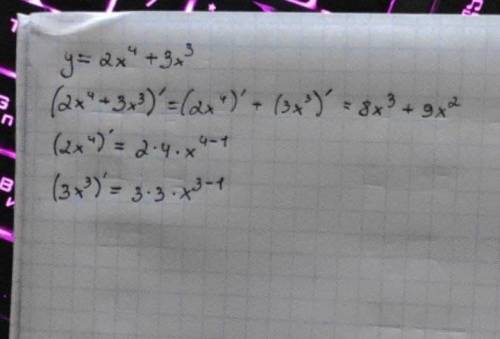 y = 2x⁴ + 3x³
(2x⁴ + 3x³)' = (2x⁴)' + (3x³)' = 8x³ + 9x²
(2x⁴)' = 2·4·x⁴⁻¹
(3x³)' = 3·3·x³⁻¹